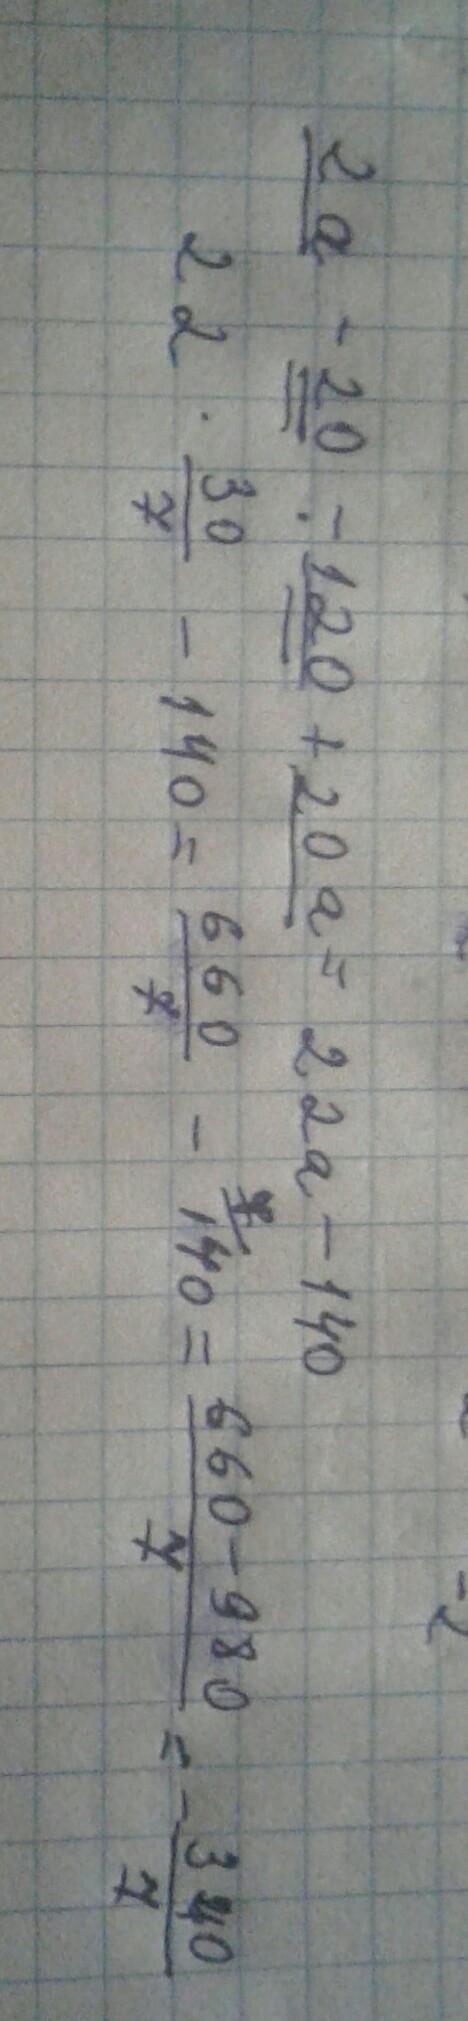 2a - 20 - 120 + 20a = 22a - 140
22 · 30/7 - 140 = 660/7 - 140 = 660-980/7 = - 340/7